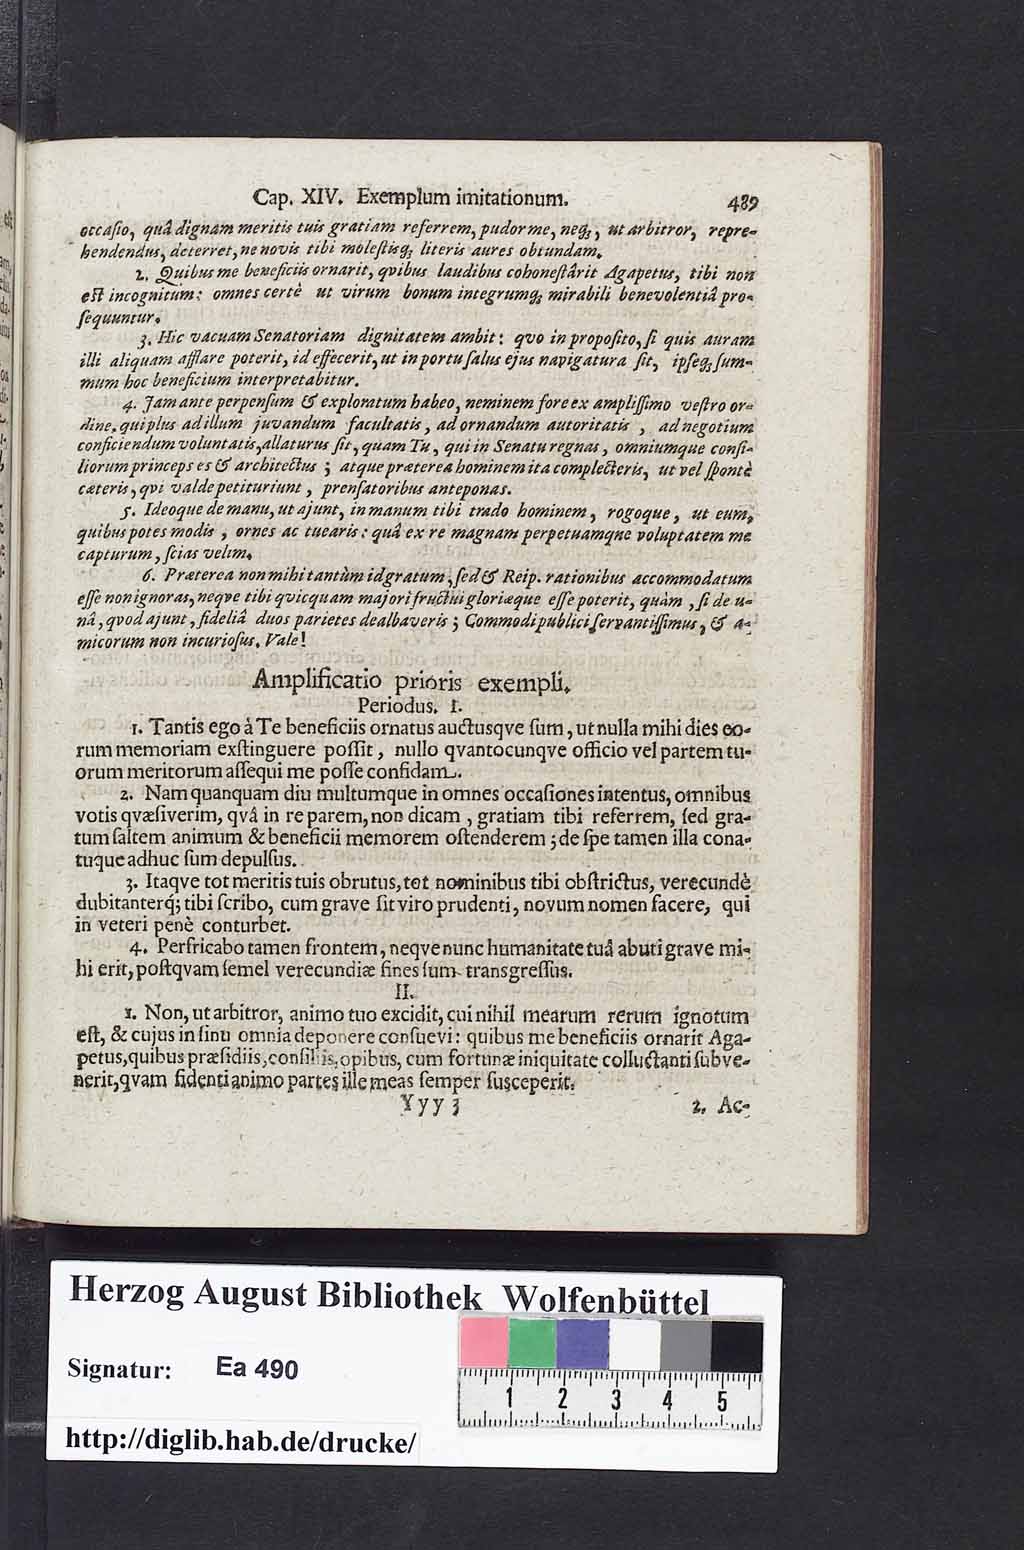 Cap. XIV. Exemplum imitationum. 489
occaſio, quâ dignam meritis tuis gratiam referrem, pudor me, neq́;, ut arbitror, repre-
hendendus, deterret, ne novis tibi moleſtisq́; literis aures obtundam.
2. Quibus me beneficiis ornarit, qvibus laudibus cohoneſtârit Agapetus, tibi non
eſt incognitum: omnes certè ut virum bonum integrumq́; mirabili benevolentiâ pro-
ſequuntur.
3. Hic vacuam Senatoriam dignitatem ambit: qvo in propoſito, ſi quis auram
illi aliquam afflare poterit, id effecerit, ut in portu ſalus ejus navigatura ſit, ipſeq́; ſum-
mum hoc beneficium interpretabitur.
4. Jam ante perpenſum & exploratum habeo, neminem fore ex ampliſſimo veſtro or-
dine, qui plus ad illum juvandum facultatis, ad ornandum autoritatis, ad negotium
conficiendum voluntatis, allaturus ſit, quam Tu, qui in Senatu regnas, omniumque conſi-
liorum princeps es & architectus; atque præterea hominem ita complecteris, ut vel ſpontè
cæteris, qvi valde petituriunt, prenſatoribus anteponas.
5. Ideoque de manu, ut ajunt, in manum tibi trado hominem, rogoque, ut eum,
quibus potes modis, ornes ac tuearis: quâ ex re magnam perpetuamqne voluptatem me
capturum, ſcias velim.
6. Præterea non mihi tantùm id gratum, ſed & Reip. rationibus accommodatum
eſſe non ignoras, neqve tibi qvicquam majori fructui gloriæque eſſe poterit, quàm, ſi de u-
nâ, qvod ajunt, fideliâ duos parietes dealbaveris; Commodi publici ſervantiſſimus, & a-
micorum non incurioſus. Vale!
Amplificatio prioris exempli.
Periodus. I.
1. Tantis ego à Te beneficiis ornatus auctusqve ſum, ut nulla mihi dies eo-
rum memoriam exſtinguere poſſit, nullo qvantocunqve officio vel partem tu-
orum meritorum aſſequi me poſſe confidam.
2. Nam quanquam diu multumque in omnes occaſiones intentus, omnibus
votis qvæſiverim, qvâ in re parem, non dicam, gratiam tibi referrem, ſed gra-
tum ſaltem animum & beneficii memorem oſtenderem; de ſpe tamen illa cona-
tuque adhuc ſum depulſus.
3. Itaqve tot meritis tuis obrutus, tot nominibus tibi obſtrictus, verecundè
dubitanterq́; tibi ſcribo, cum grave ſit viro prudenti, novum nomen facere, qui
in veteri penè conturbet.
4. Perfricabo tamen frontem, neqve nunc humanitate tuâ abuti grave mi-
hi erit, poſtqvam ſemel verecundiæ fines ſum transgreſſus.
II.
1. Non, ut arbitror, animo tuo excidit, cui nihil mearum rerum ignotum
eſt, & cujus in ſinu omnia deponere conſuevi: quibus me beneficiis ornarit Aga-
petus, quibus præſidiis, conſiliis, opibus, cum fortunæ iniquitate colluctanti ſubve-
nerit, qvam fidenti animo partes ille meas ſemper ſuſceperit.
Yyy 3 2. Ac-
Herzog August Bibliothek Wolfenbüttel
Signatur: Ea 490
1 2 3 4 5
http://diglib.hab.de/drucke/